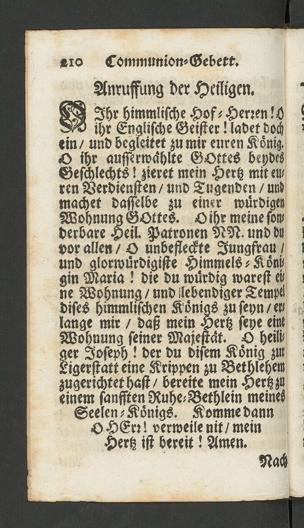 210 Communion-Gebett.
Anruffung der Heiligen.
O Ihr himmlische Hof-Herren! O
ihr Englische Geister! ladet doch
ein / und begleitet zu mir euren König.
O ihr ausserwählte GOttes beydes
Geschlechts! zieret mein Hertz mit eu-
ren Verdiensten / und Tugenden / und
machet dasselbe zu einer würdigen
Wohnung GOttes. O ihr meine son-
derbare Heil. Patronen NN. und du
vor allen / O unbefleckte Jungfrau /
und glorwürdigiste Himmels-Köni-
gin Maria! die du würdig warest ei-
ne Wohnung / und lebendiger Tempel
dises himmlischen Königs zu seyn / er-
lange mir / daß mein Hertz seye eine
Wohnung seiner Majestät. O heili-
ger Joseph! der du disem König zur
Ligerstatt eine Krippen zu Bethlehem
zugerichtet hast / bereite mein Hertz zu
einem sanfften Ruhe-Bethlein meines
Seelen-Königs. Komme dann
O HErr! verweile nit / mein
Hertz ist bereit! Amen.
Nach